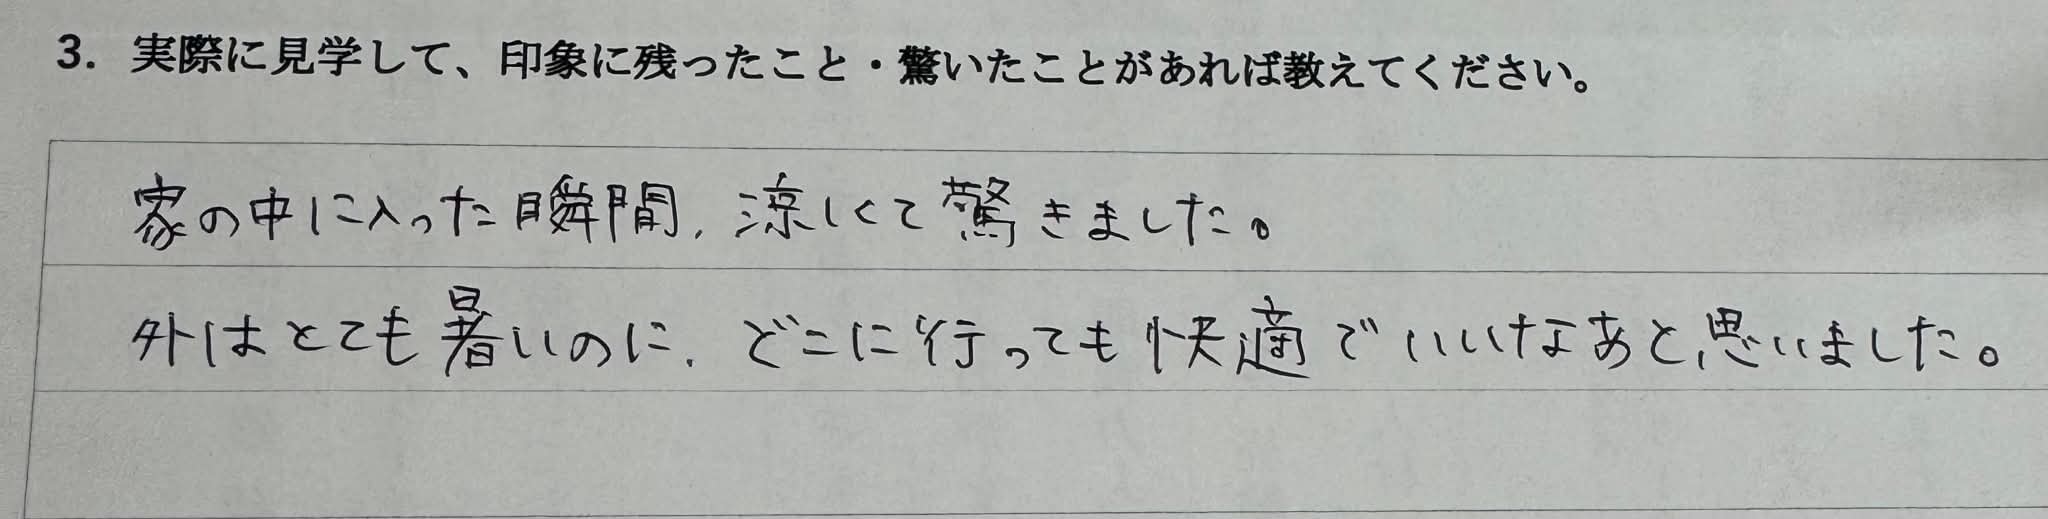 3. 実際に見学して、印象に残ったこと・驚いたことがあれば教えてください。
家の中に入った瞬間、涼しくて驚きました。
外はとても暑いのに、どこに行っても快適でいいなあと思いました。